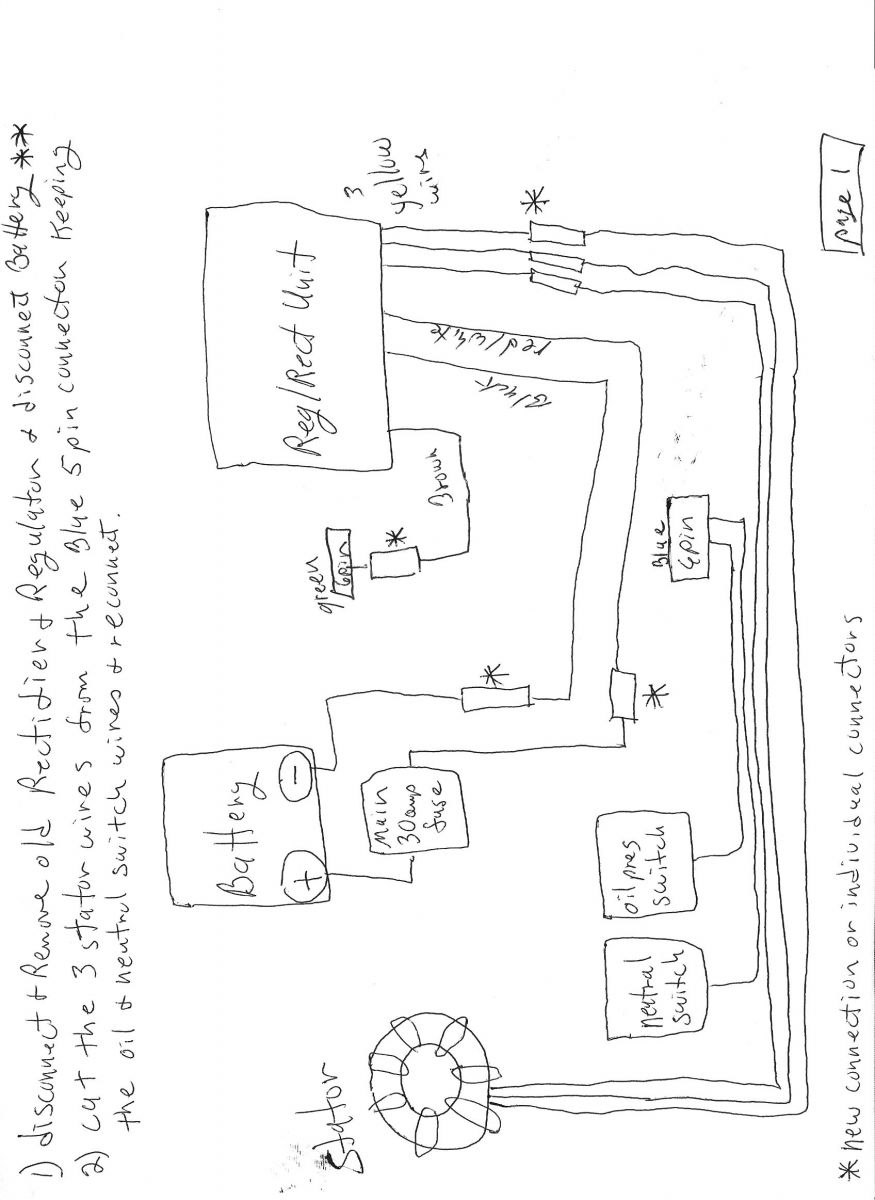 1) disconnect + Remove old Rectifier + Regulator & disconnect Battery **
2) cut the 3 stator wires from the Blue 5 pin connector Keeping
the oil & neutral switch wires & reconnect.
Reg/Rect Unit
3
yellow
wires
*
red/white
Black
Brown
green
6pin
*
Blue
6pin
*
*
Battery
+
-
Main
30amp
fuse
oil pres
switch
neutral
switch
Stator
* new connection or individual connectors
page 1